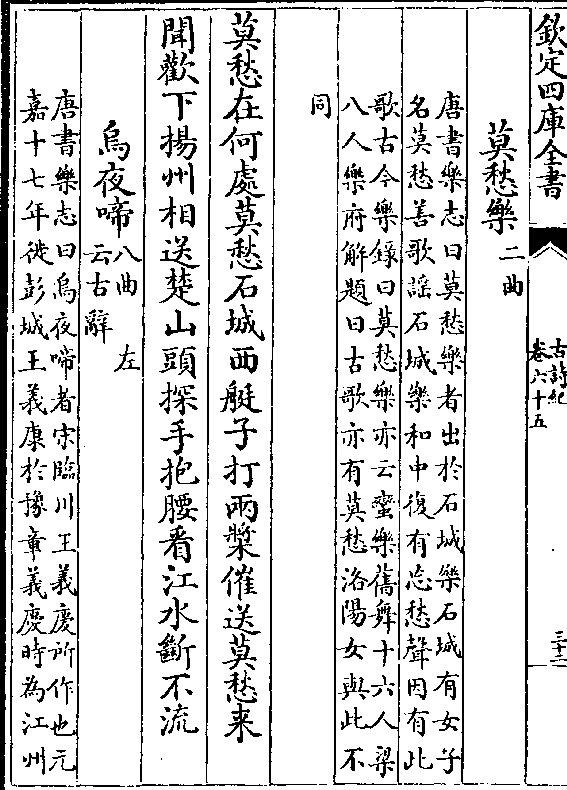 欽定四庫全書
古詩紀
卷六十五
三十二
莫愁樂二曲
唐書樂志曰莫愁樂者出於石城樂石城有女子
名莫愁善歌謡石城樂和中復有忘愁聲因有此
歌古今樂錄曰莫愁樂亦云蠻樂舊舞十六人梁
八人樂府解題曰古歌亦有莫愁洛陽女與此不
同
莫愁在何處莫愁石城西艇子打兩槳催送莫愁来
聞歡下揚州相送楚山頭探手抱腰看江水斷不流
烏夜啼八曲左
云古辭
唐書樂志曰烏夜啼者宋臨川王義慶所作也元
嘉十七年徙彭城王義康於豫章義慶時為江州